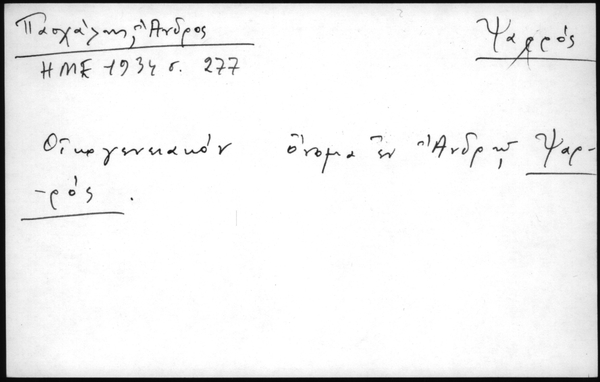 Πασχάλης, Ἄνδρος
ΗΜΕ 1934 σ. 277
Ψαρρός
Οἰκογενειακόν ὄνομα ἐν Ἄνδρῳ Ψαρ-
-ρός.